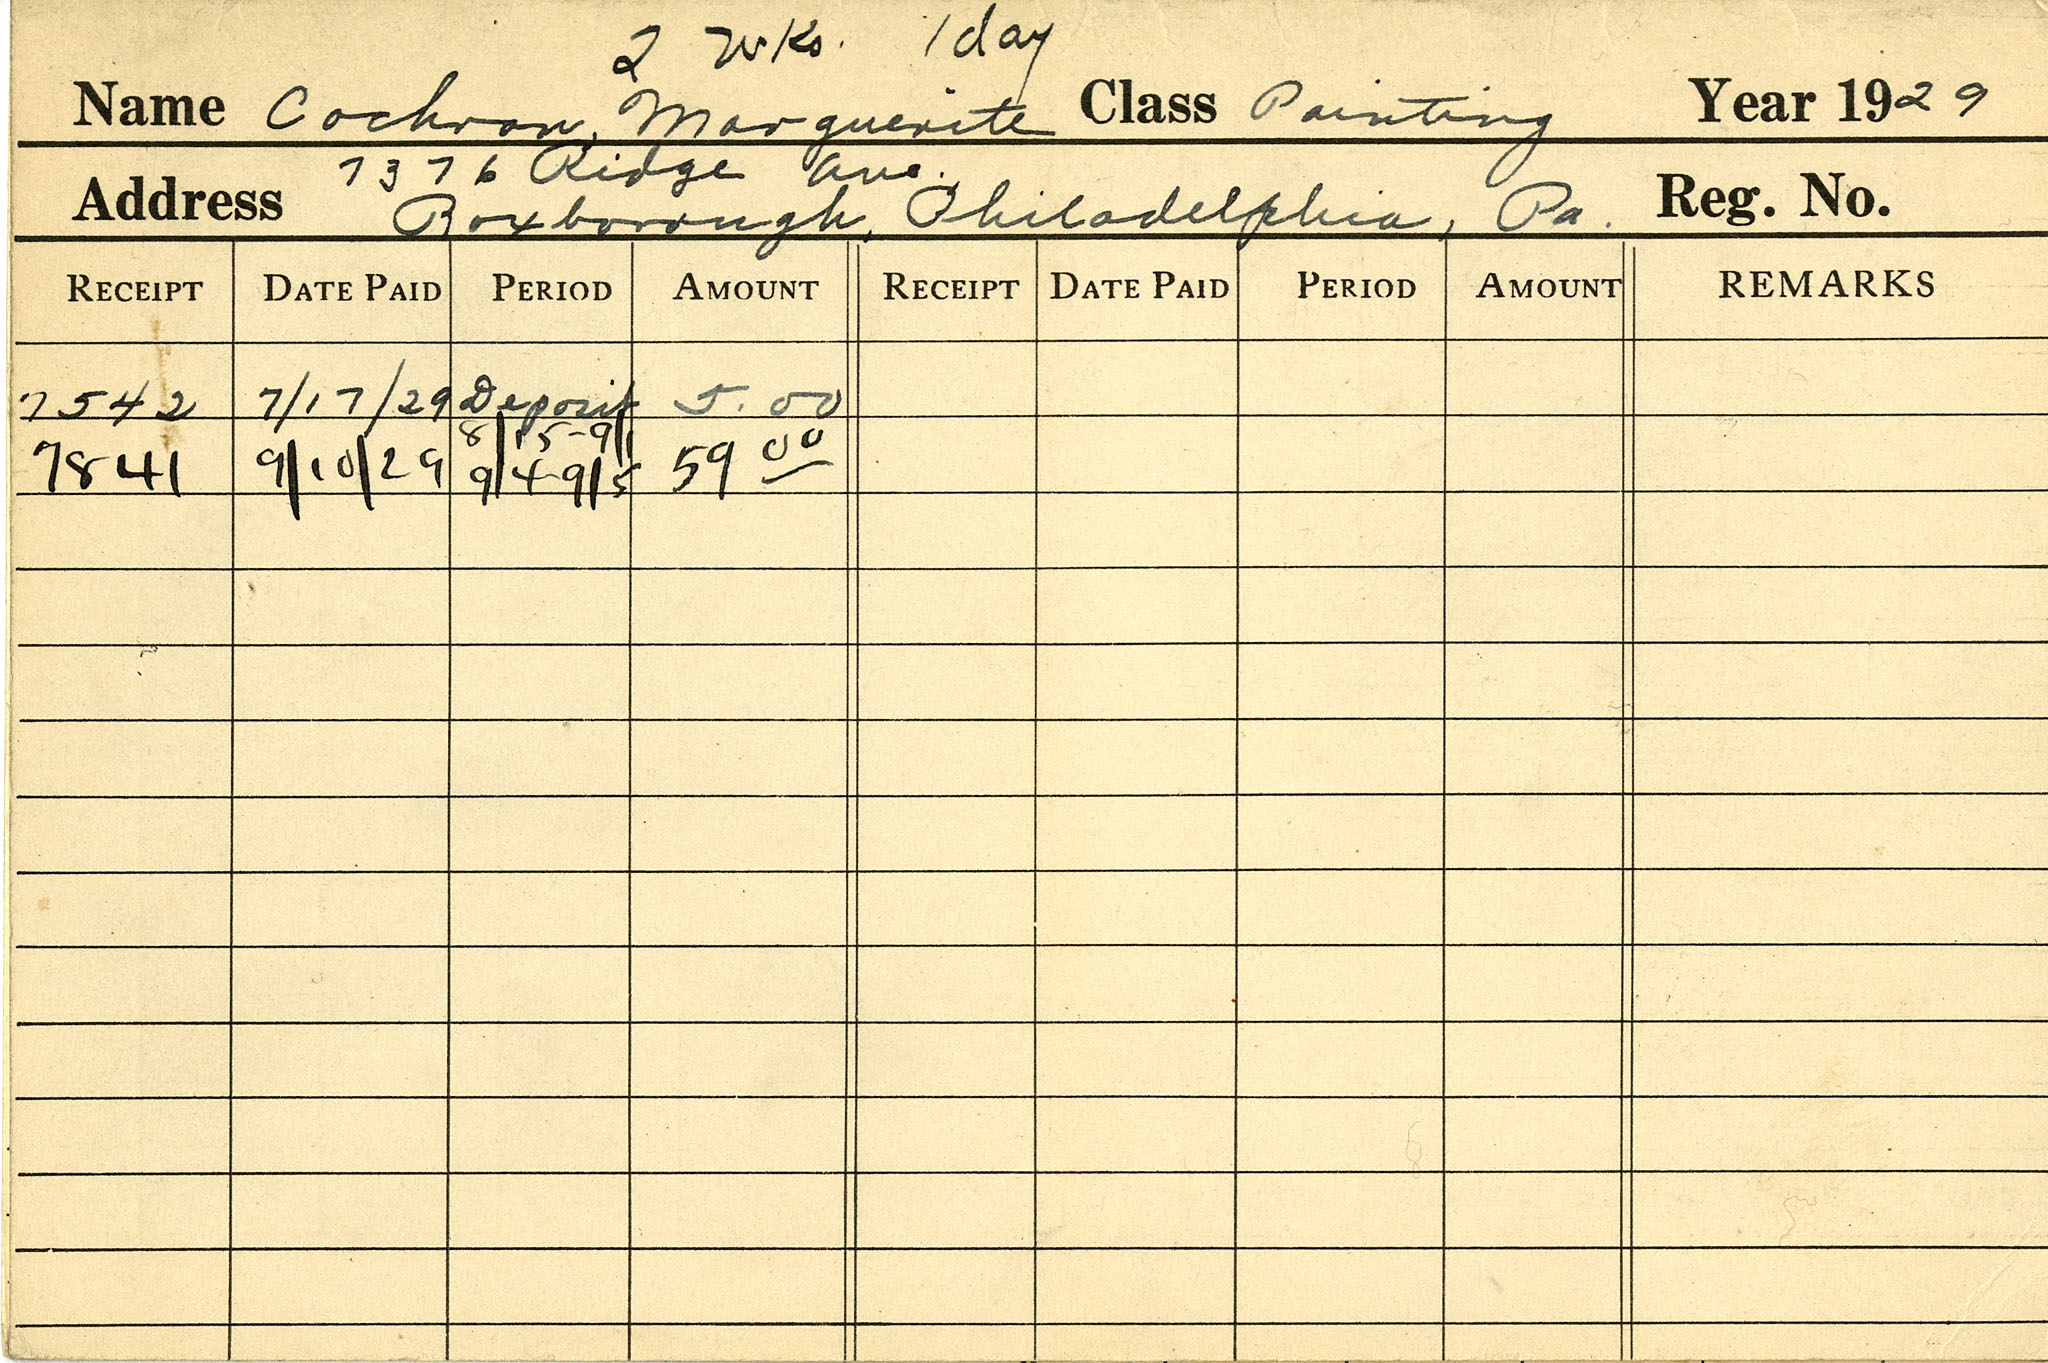 2 wks. 1 day
Name Cochran, Marguerite Class Painting Year 1929
7376 Ridge Ave.
Address Roxborough, Philadelphia, Pa. Reg. No.
RECEIPT DATE PAID PERIOD AMOUNT RECEIPT DATE PAID PERIOD AMOUNT REMARKS
7542 7/17/29 Deposit 5.00
8/15-9/1
7841 9/10/29 9/4-9/5 59 00